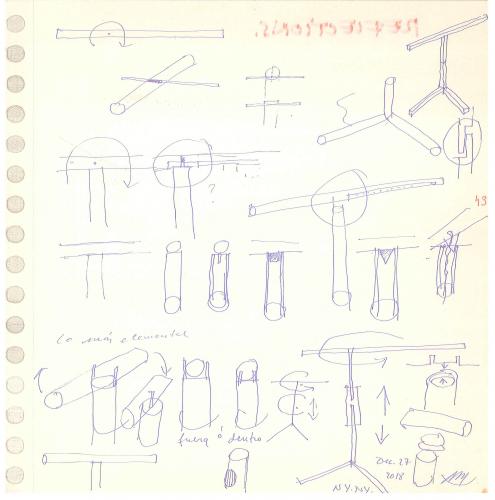 REFLECTIONS.
?
43
Lo más elemental
fuera ó dentro
Dec. 27
2018
N.Y. N.Y.